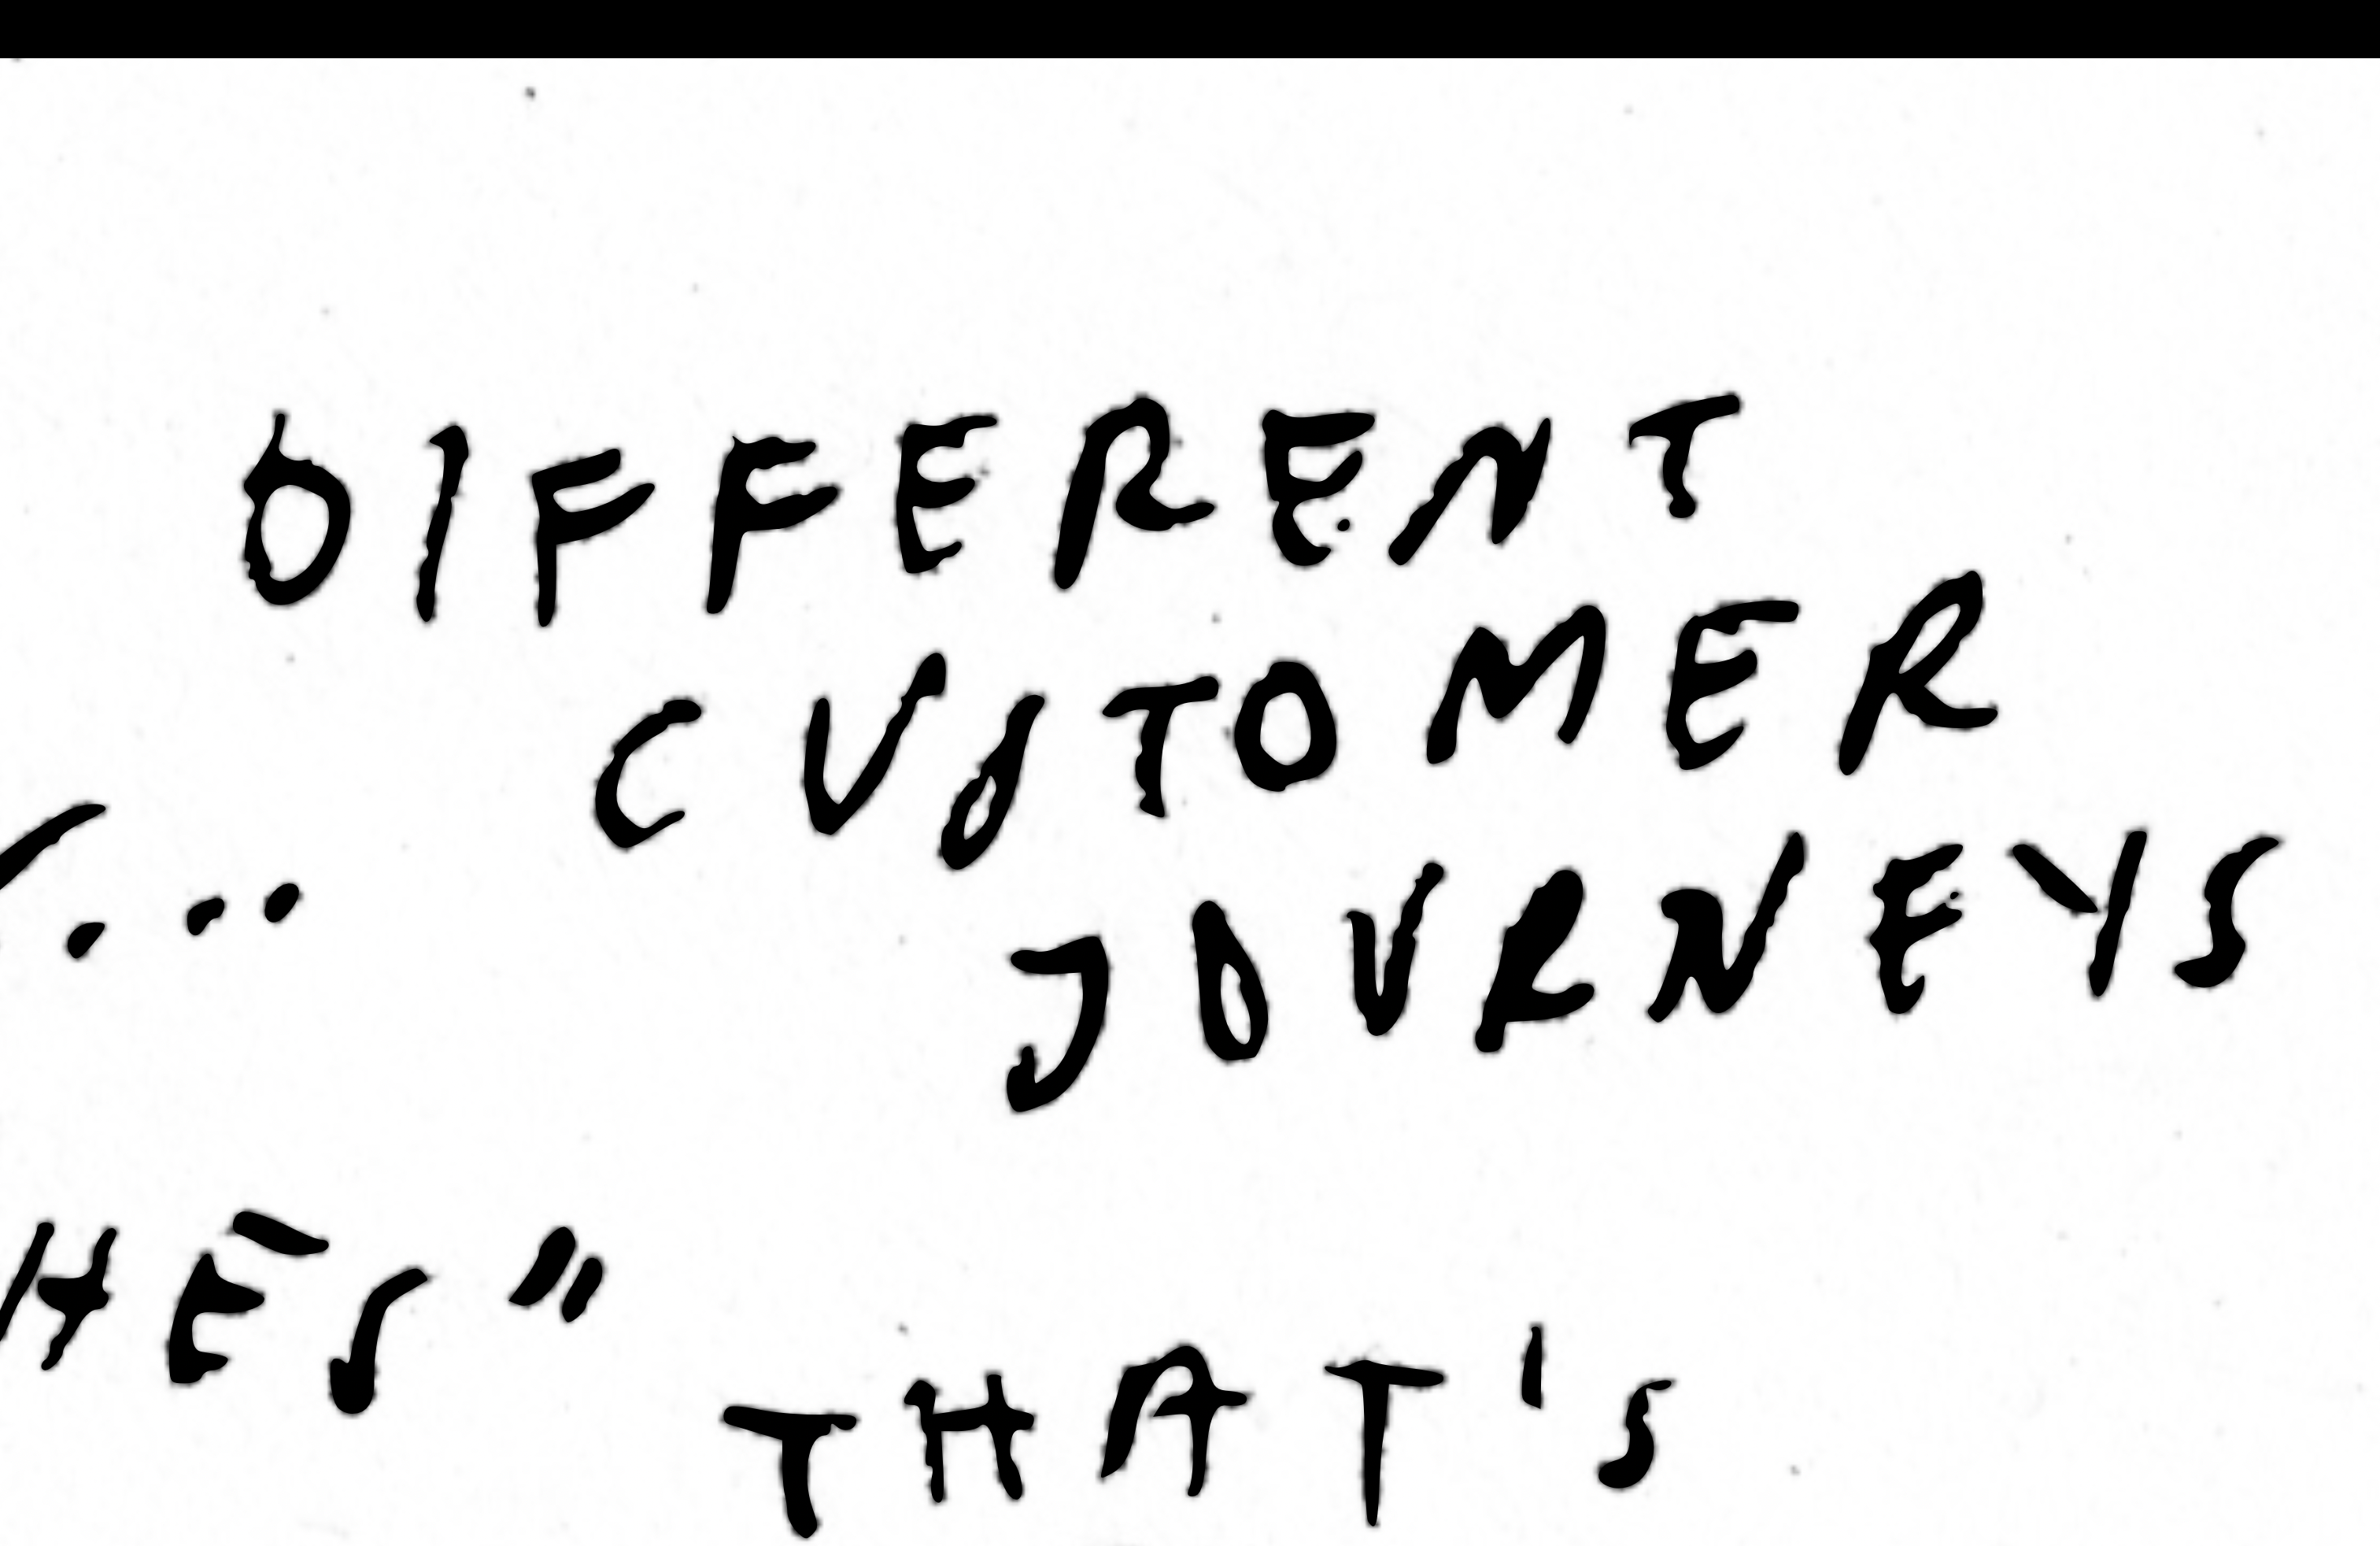 DIFFERENT
CUSTOMER
JOURNEYS
THAT'S